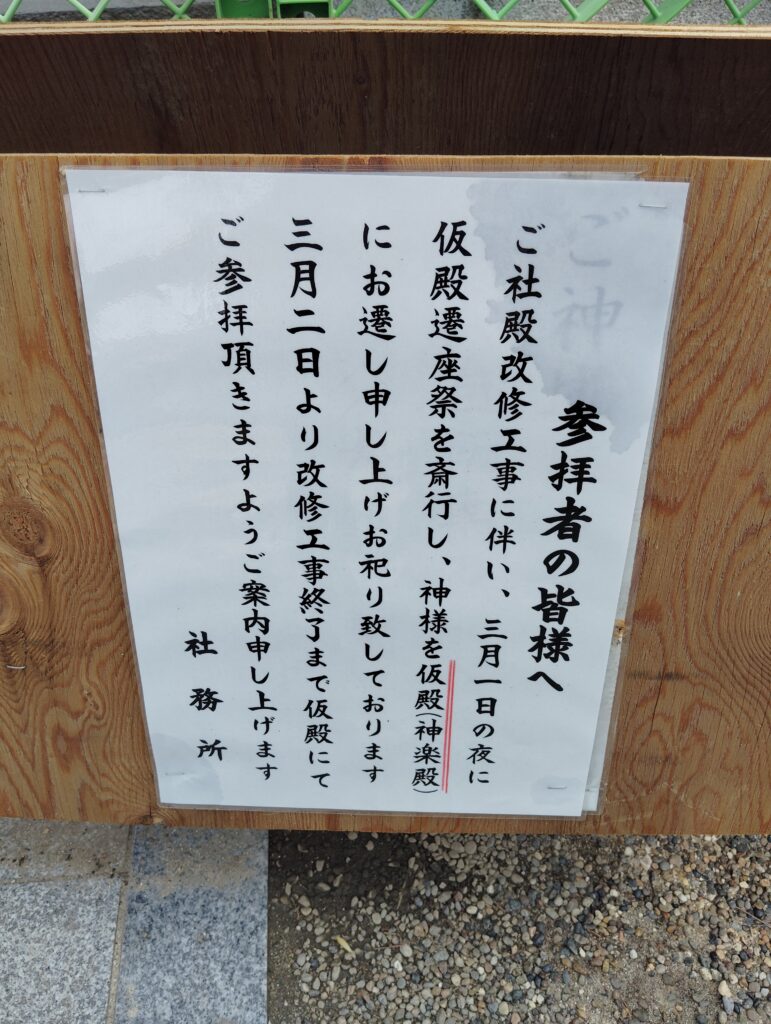 参拝者の皆様へ
ご社殿改修工事に伴い、三月一日の夜に
仮殿遷座祭を斎行し、神様を仮殿(神楽殿)
にお遷し申し上げお祀り致しております
三月二日より改修工事終了まで仮殿にて
ご参拝頂きますようご案内申し上げます
社務所
ご神